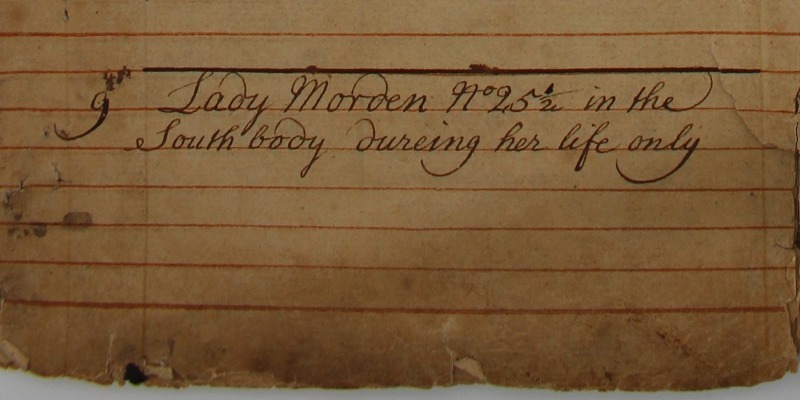 9 Lady Morden No 25 1/2 in the
South body dureing her life only